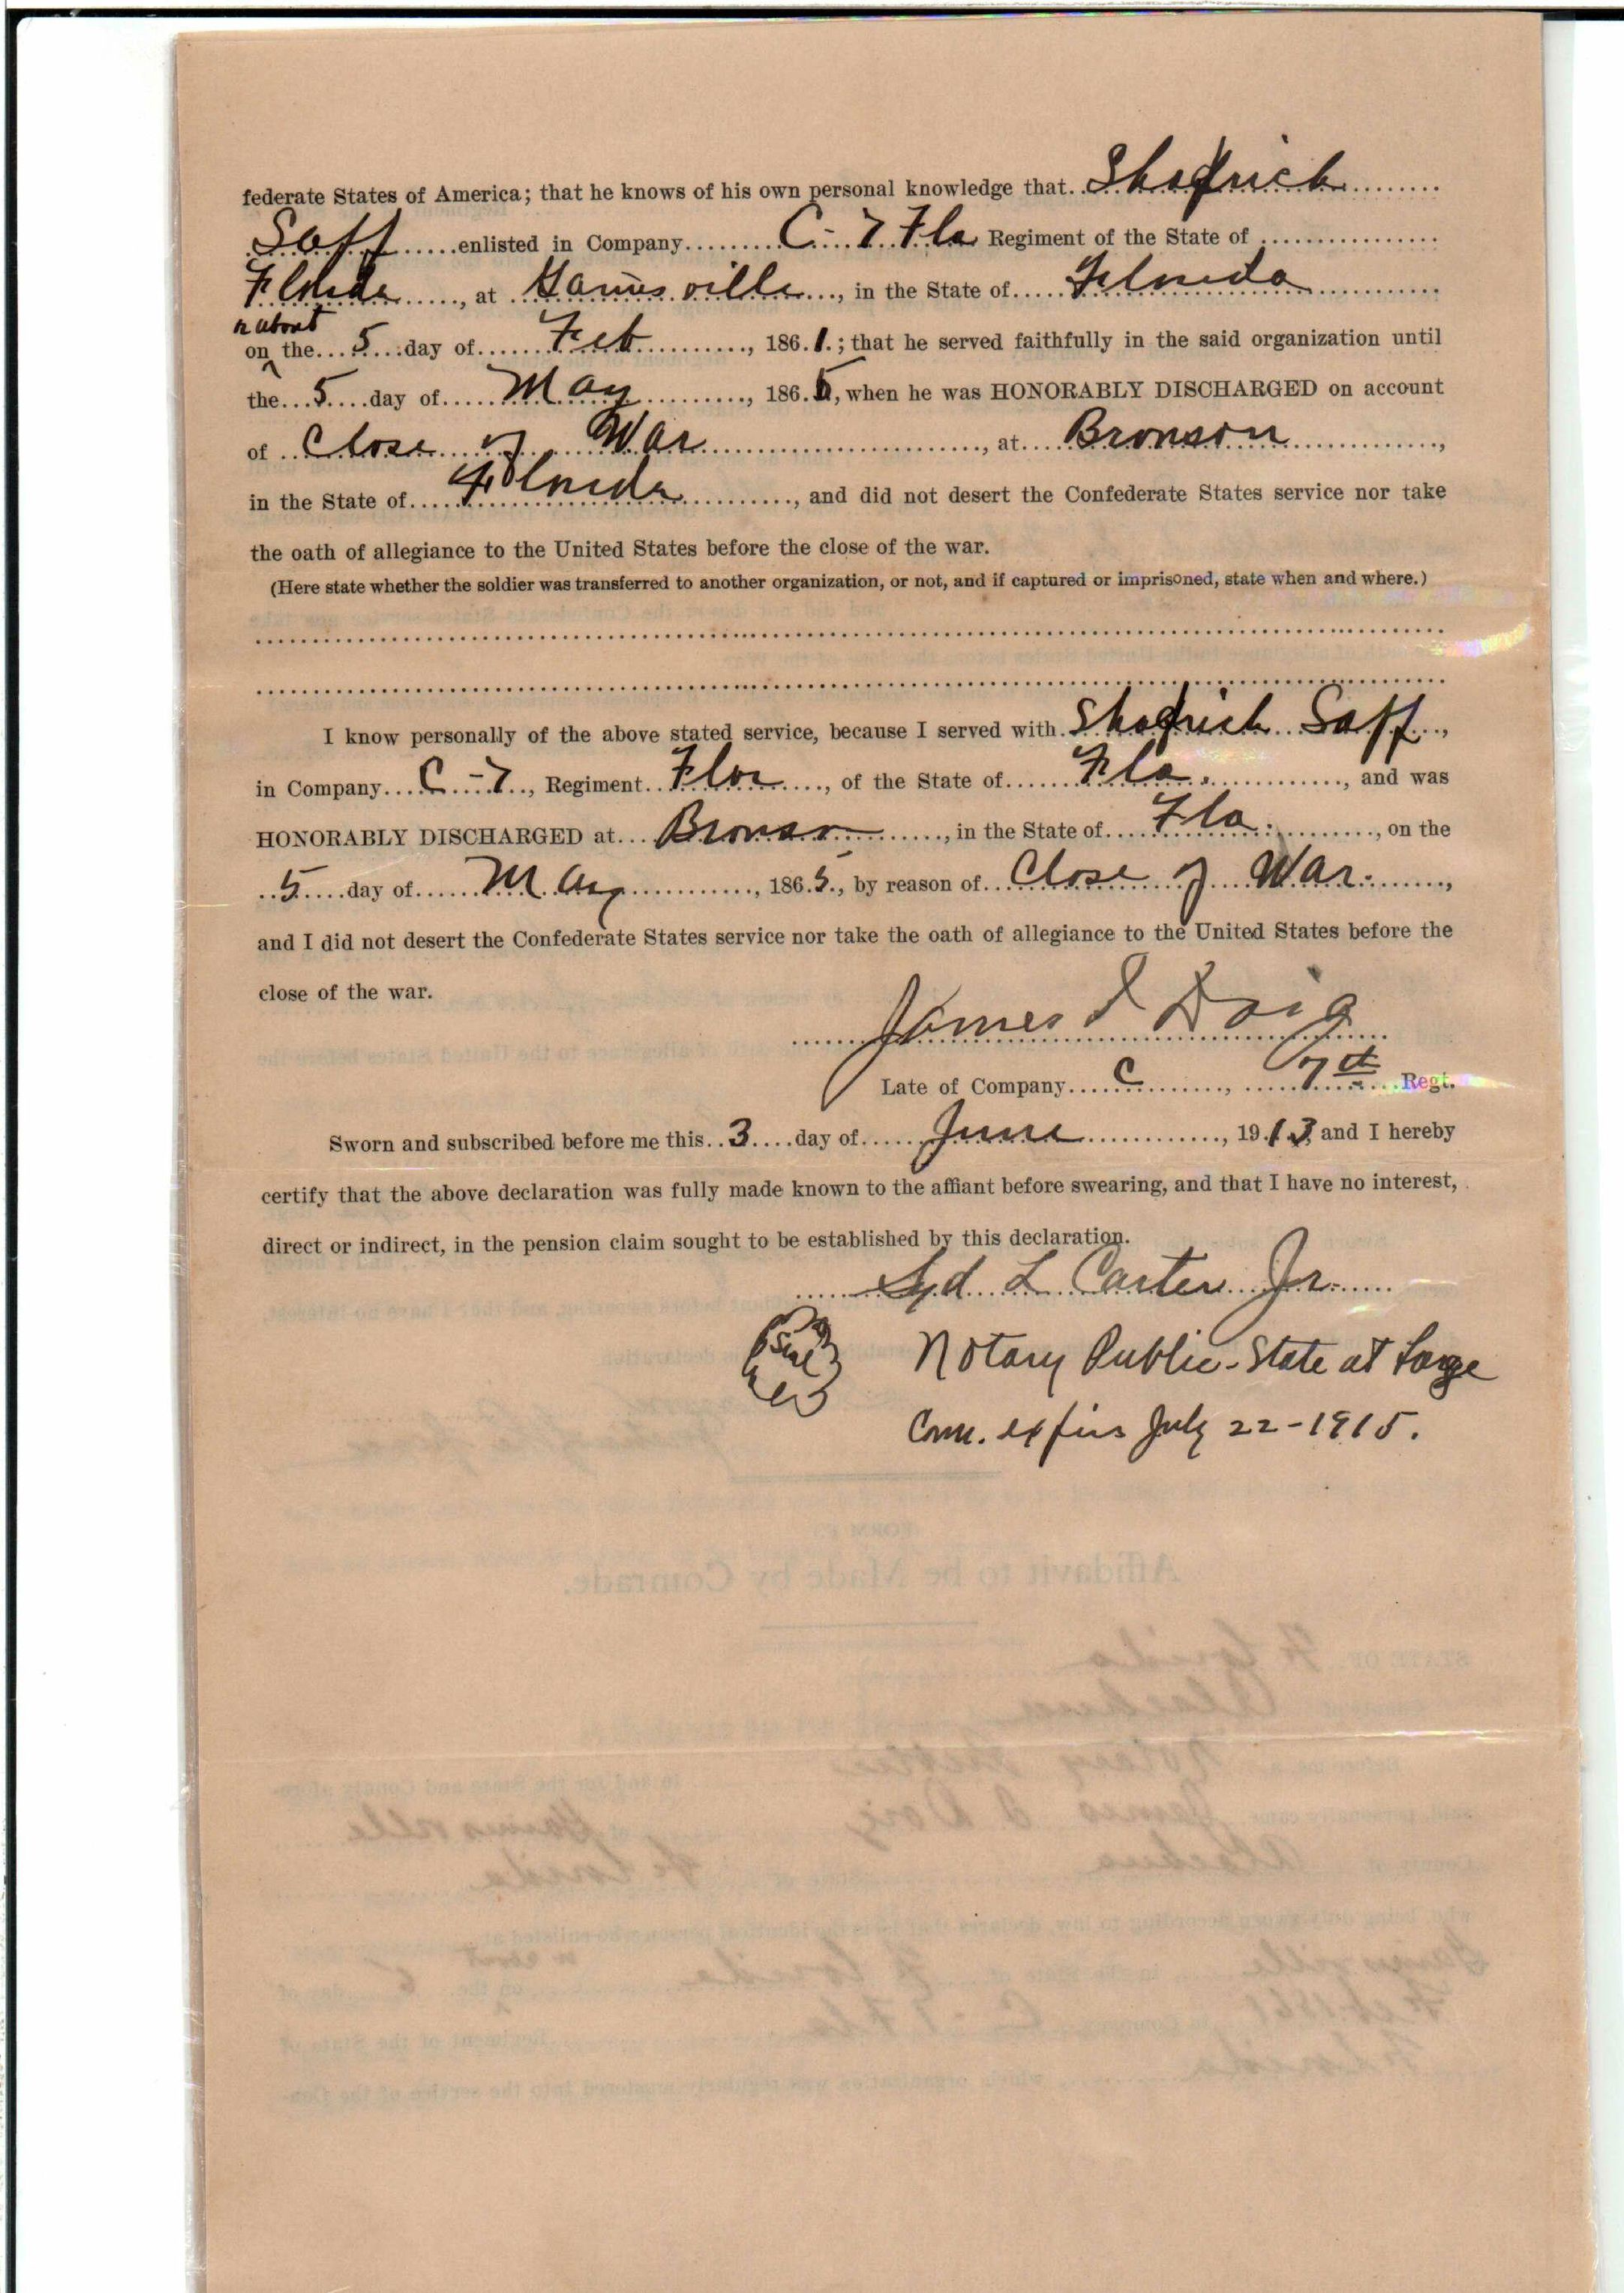 federate States of America; that he knows of his own personal knowledge that Shadrick
Saff enlisted in Company C-7 Fla Regiment of the State of
Florida, at Gainesville, in the State of Florida
or about
on the 5 day of Feb, 1861; that he served faithfully in the said organization until
the 5 day of May, 1865, when he was HONORABLY DISCHARGED on account
of Close of War, at Bronson,
in the State of Florida, and did not desert the Confederate States service nor take
the oath of allegiance to the United States before the close of the war.
(Here state whether the soldier was transferred to another organization, or not, and if captured or imprisoned, state when and where.)
I know personally of the above stated service, because I served with Shadrick Saff,
in Company C-7, Regiment Flor, of the State of Fla., and was
HONORABLY DISCHARGED at Bronson, in the State of Fla., on the
5 day of May, 1865, by reason of Close of War.,
and I did not desert the Confederate States service nor take the oath of allegiance to the United States before the
close of the war.
James I Doig
Late of Company C, 7th Regt.
Sworn and subscribed before me this 3 day of June, 1913, and I hereby
certify that the above declaration was fully made known to the affiant before swearing, and that I have no interest,
direct or indirect, in the pension claim sought to be established by this declaration.
Syd L Carter Jr.
Seal
Notary Public-State at Large
Com. expires July 22-1915.